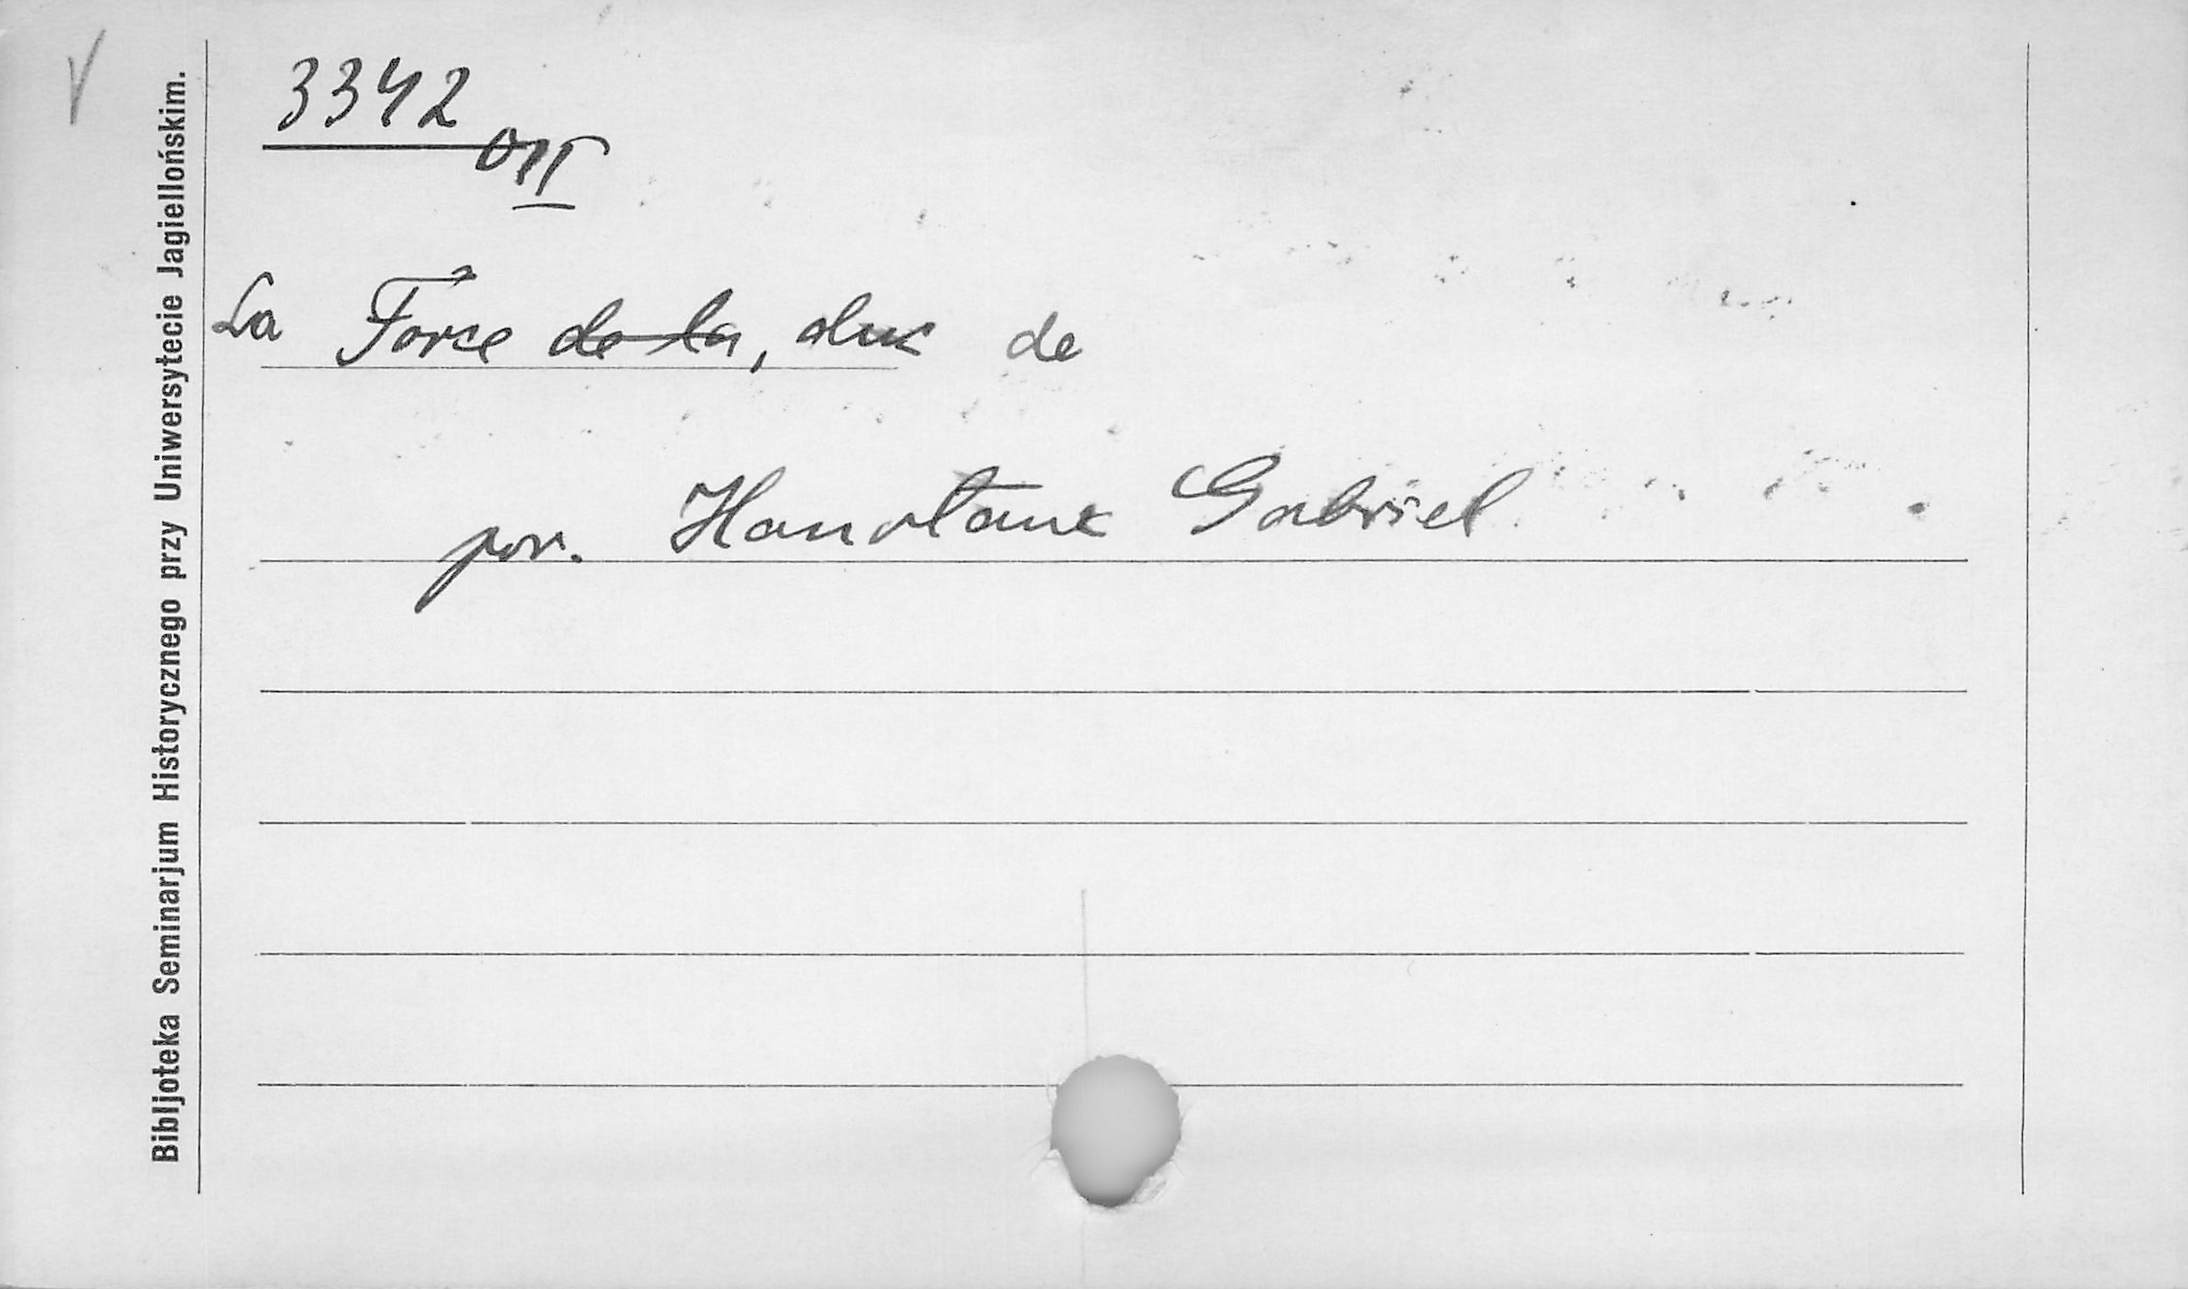 V
3342
OII
La Force de la, duc de
por. Hanotaux Gabriel
Bibljoteka Seminarjum Historycznego przy Uniwersytecie Jagiellońskim.